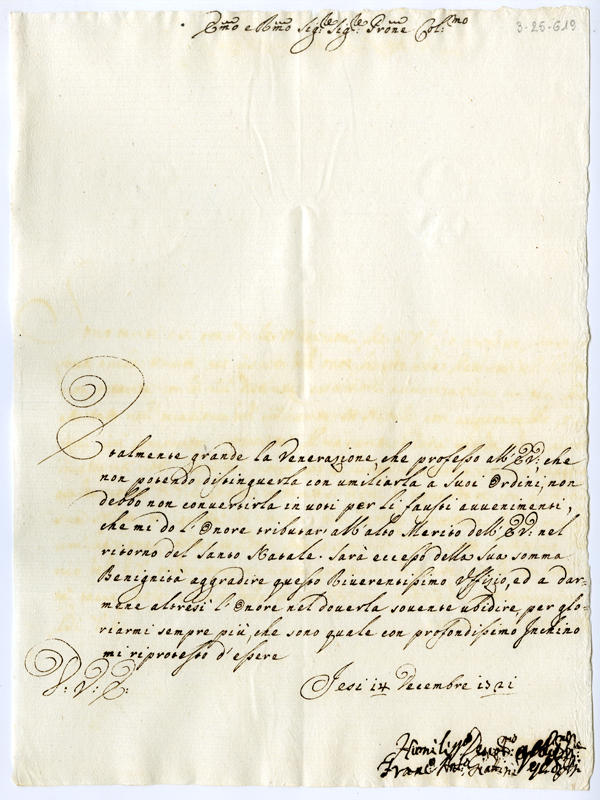 Emo e Rmo Sigre Sigre Prone Colmo
3-25-619
E talmente grande la Venerazione, che professo all'E.V: che
non potendo distinguerla con umiliarla a suoi Ordini, non
debbo non convertirla in voti per li fausti avvenimenti,
che mi do l'Onore tributar all'alto Merito dell'E.V: nel
ritorno del Santo Natale. Sarà eccesso della sua somma
Benignità aggradire questo Riverentissimo Uffizio, ed a dar=
mene altresì l'Onore nel doverla sovente ubidire, per glo=
riarmi sempre più, che sono quale con profondissimo Inchino
mi riprotesto d'essere
Jesi 14 Decembre 1721
V: E:
Humilissmo Devotmo
Franco Anto